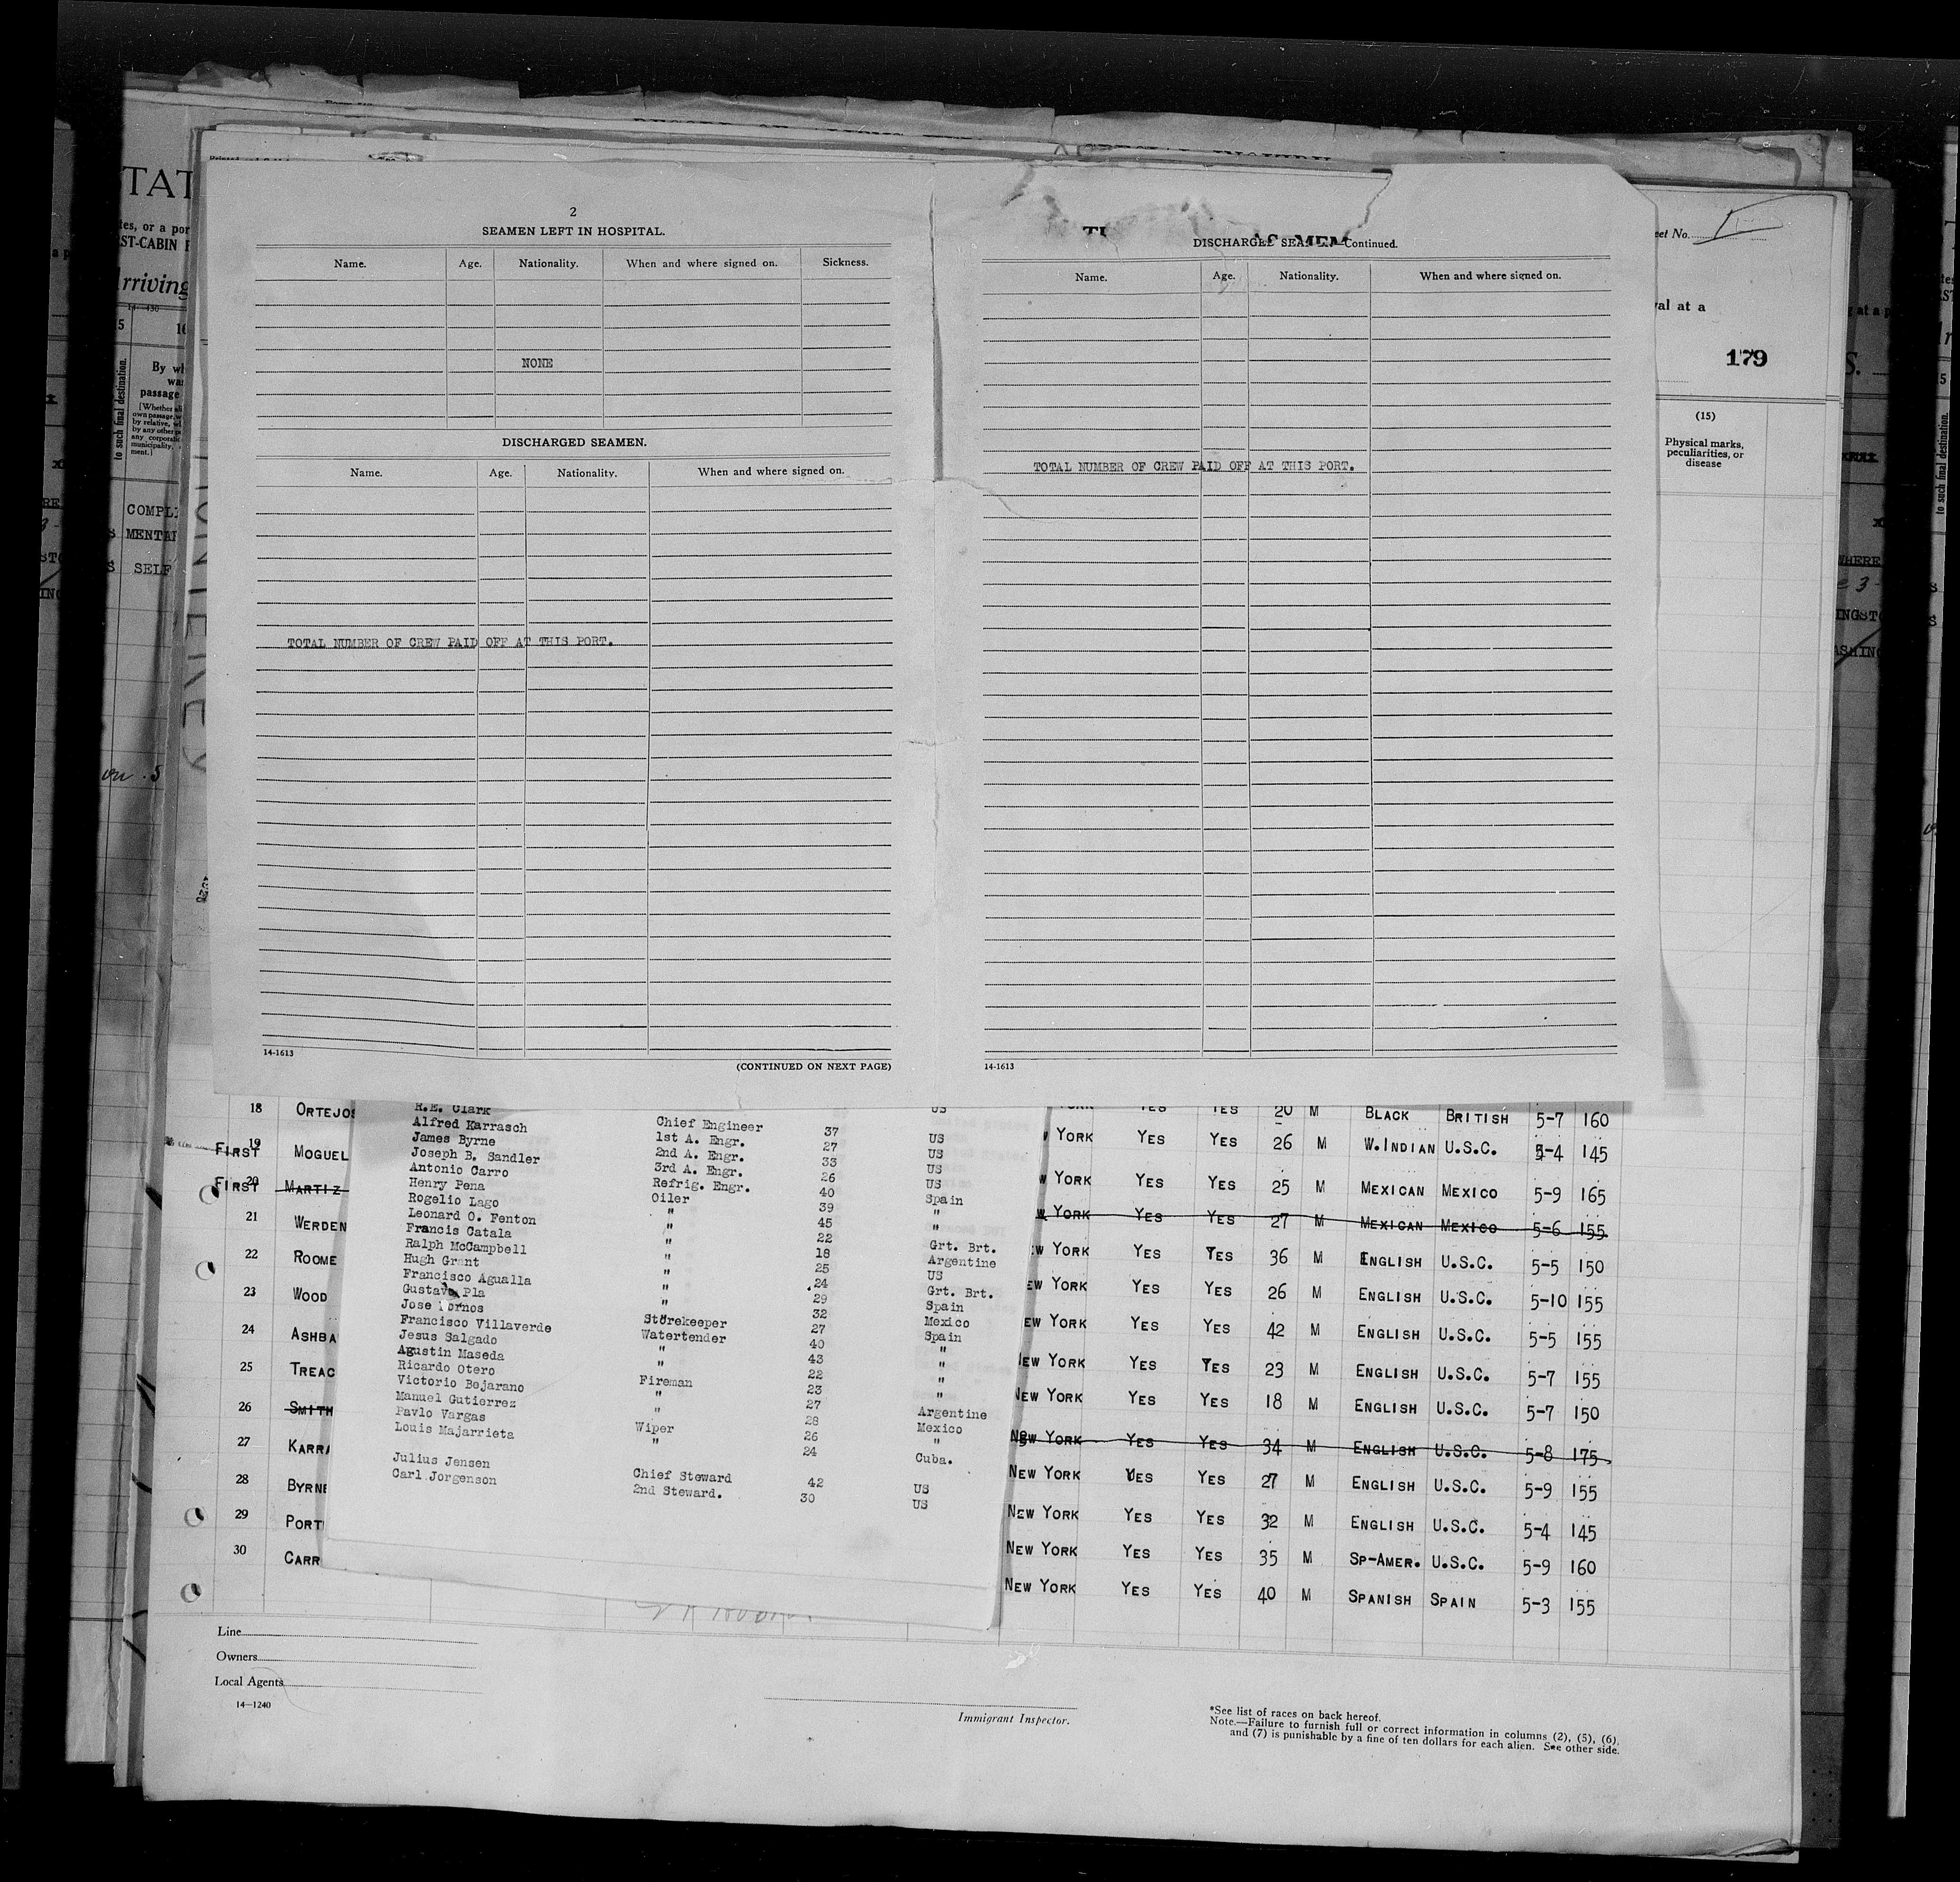 2
SEAMEN LEFT IN HOSPITAL.
Name. Age. Nationality. When and where signed on. Sickness.
NONE
DISCHARGED SEAMEN.
Name. Age. Nationality. When and where signed on.
TOTAL NUMBER OF CREW PAID OFF AT THIS PORT.
14-1613
(CONTINUED ON NEXT PAGE)
DISCHARGED SEAMEN—Continued.
Name. Age. Nationality. When and where signed on.
TOTAL NUMBER OF CREW PAID OFF AT THIS PORT.
14-1613
TAT
tes, or a por
ST-CABIN
rriving
14-430
to such final destination.
By wh
was
passage
COMPL
MENTAR
SELF
eet No.
val at a
179
(15)
Physical marks,
peculiarities, or
disease
R.E. Clark US
Alfred Karrasch Chief Engineer 37 US
James Byrne 1st A. Engr. 27 US
Joseph B. Sandler 2nd A. Engr. 33 US
Antonio Carro 3rd A. Engr. 26 US
Henry Pena Refrig. Engr. 40 Spain
Rogelio Lago Oiler 39 "
Leonard O. Fenton " 45 "
Francis Catala " 22 Grt. Brt.
Ralph McCampbell " 18 Argentine
Hugh Grant " 25 US
Francisco Agualla " 24 Grt. Brt.
Gustavo Pla " 29 Spain
Jose " 32 Mexico
Francisco Villaverde Storekeeper 27 Spain
Jesus Salgado Watertender 40 "
Agustin Maseda " 43 "
Ricardo Otero " 22 "
Victorio Bejarano Fireman 23 "
Manuel Gutierrez " 27 Argentine
Pavlo Vargas " 28 Mexico
Louis Majarrieta Wiper 26 "
" 24 Cuba.
Julius Jensen Chief Steward 42 US
Carl Jorgenson 2nd Steward. 30 US
18 ORTEJOS YORK YES YES 20 M BLACK BRITISH 5-7 160
19 FIRST MOGUEL YORK YES YES 26 M W.INDIAN U.S.C. 5-4 145
20 FIRST MARTIZ YORK YES YES 25 M MEXICAN MEXICO 5-9 165
21 WERDEN YORK YES YES 27 M MEXICAN MEXICO 5-6 155
22 ROOME EW YORK YES YES 36 M ENGLISH U.S.C. 5-5 150
23 WOOD EW YORK YES YES 26 M ENGLISH U.S.C. 5-10 155
24 ASHBA EW YORK YES YES 42 M ENGLISH U.S.C. 5-5 155
25 TREAC NEW YORK YES YES 23 M ENGLISH U.S.C. 5-7 155
26 SMITH NEW YORK YES YES 18 M ENGLISH U.S.C. 5-7 150
27 KARRA NEW YORK YES YES 34 M ENGLISH U.S.C. 5-8 175
28 BYRNE NEW YORK YES YES 27 M ENGLISH U.S.C. 5-9 155
29 PORT NEW YORK YES YES 32 M ENGLISH U.S.C. 5-4 145
30 CARR NEW YORK YES YES 35 M SP-AMER. U.S.C. 5-9 160
NEW YORK YES YES 40 M SPANISH SPAIN 5-3 155
Line
Owners
Local Agents
14—1240
Immigrant Inspector.
*See list of races on back hereof.
Note.—Failure to furnish full or correct information in columns (2), (5), (6),
and (7) is punishable by a fine of ten dollars for each alien. See other side.